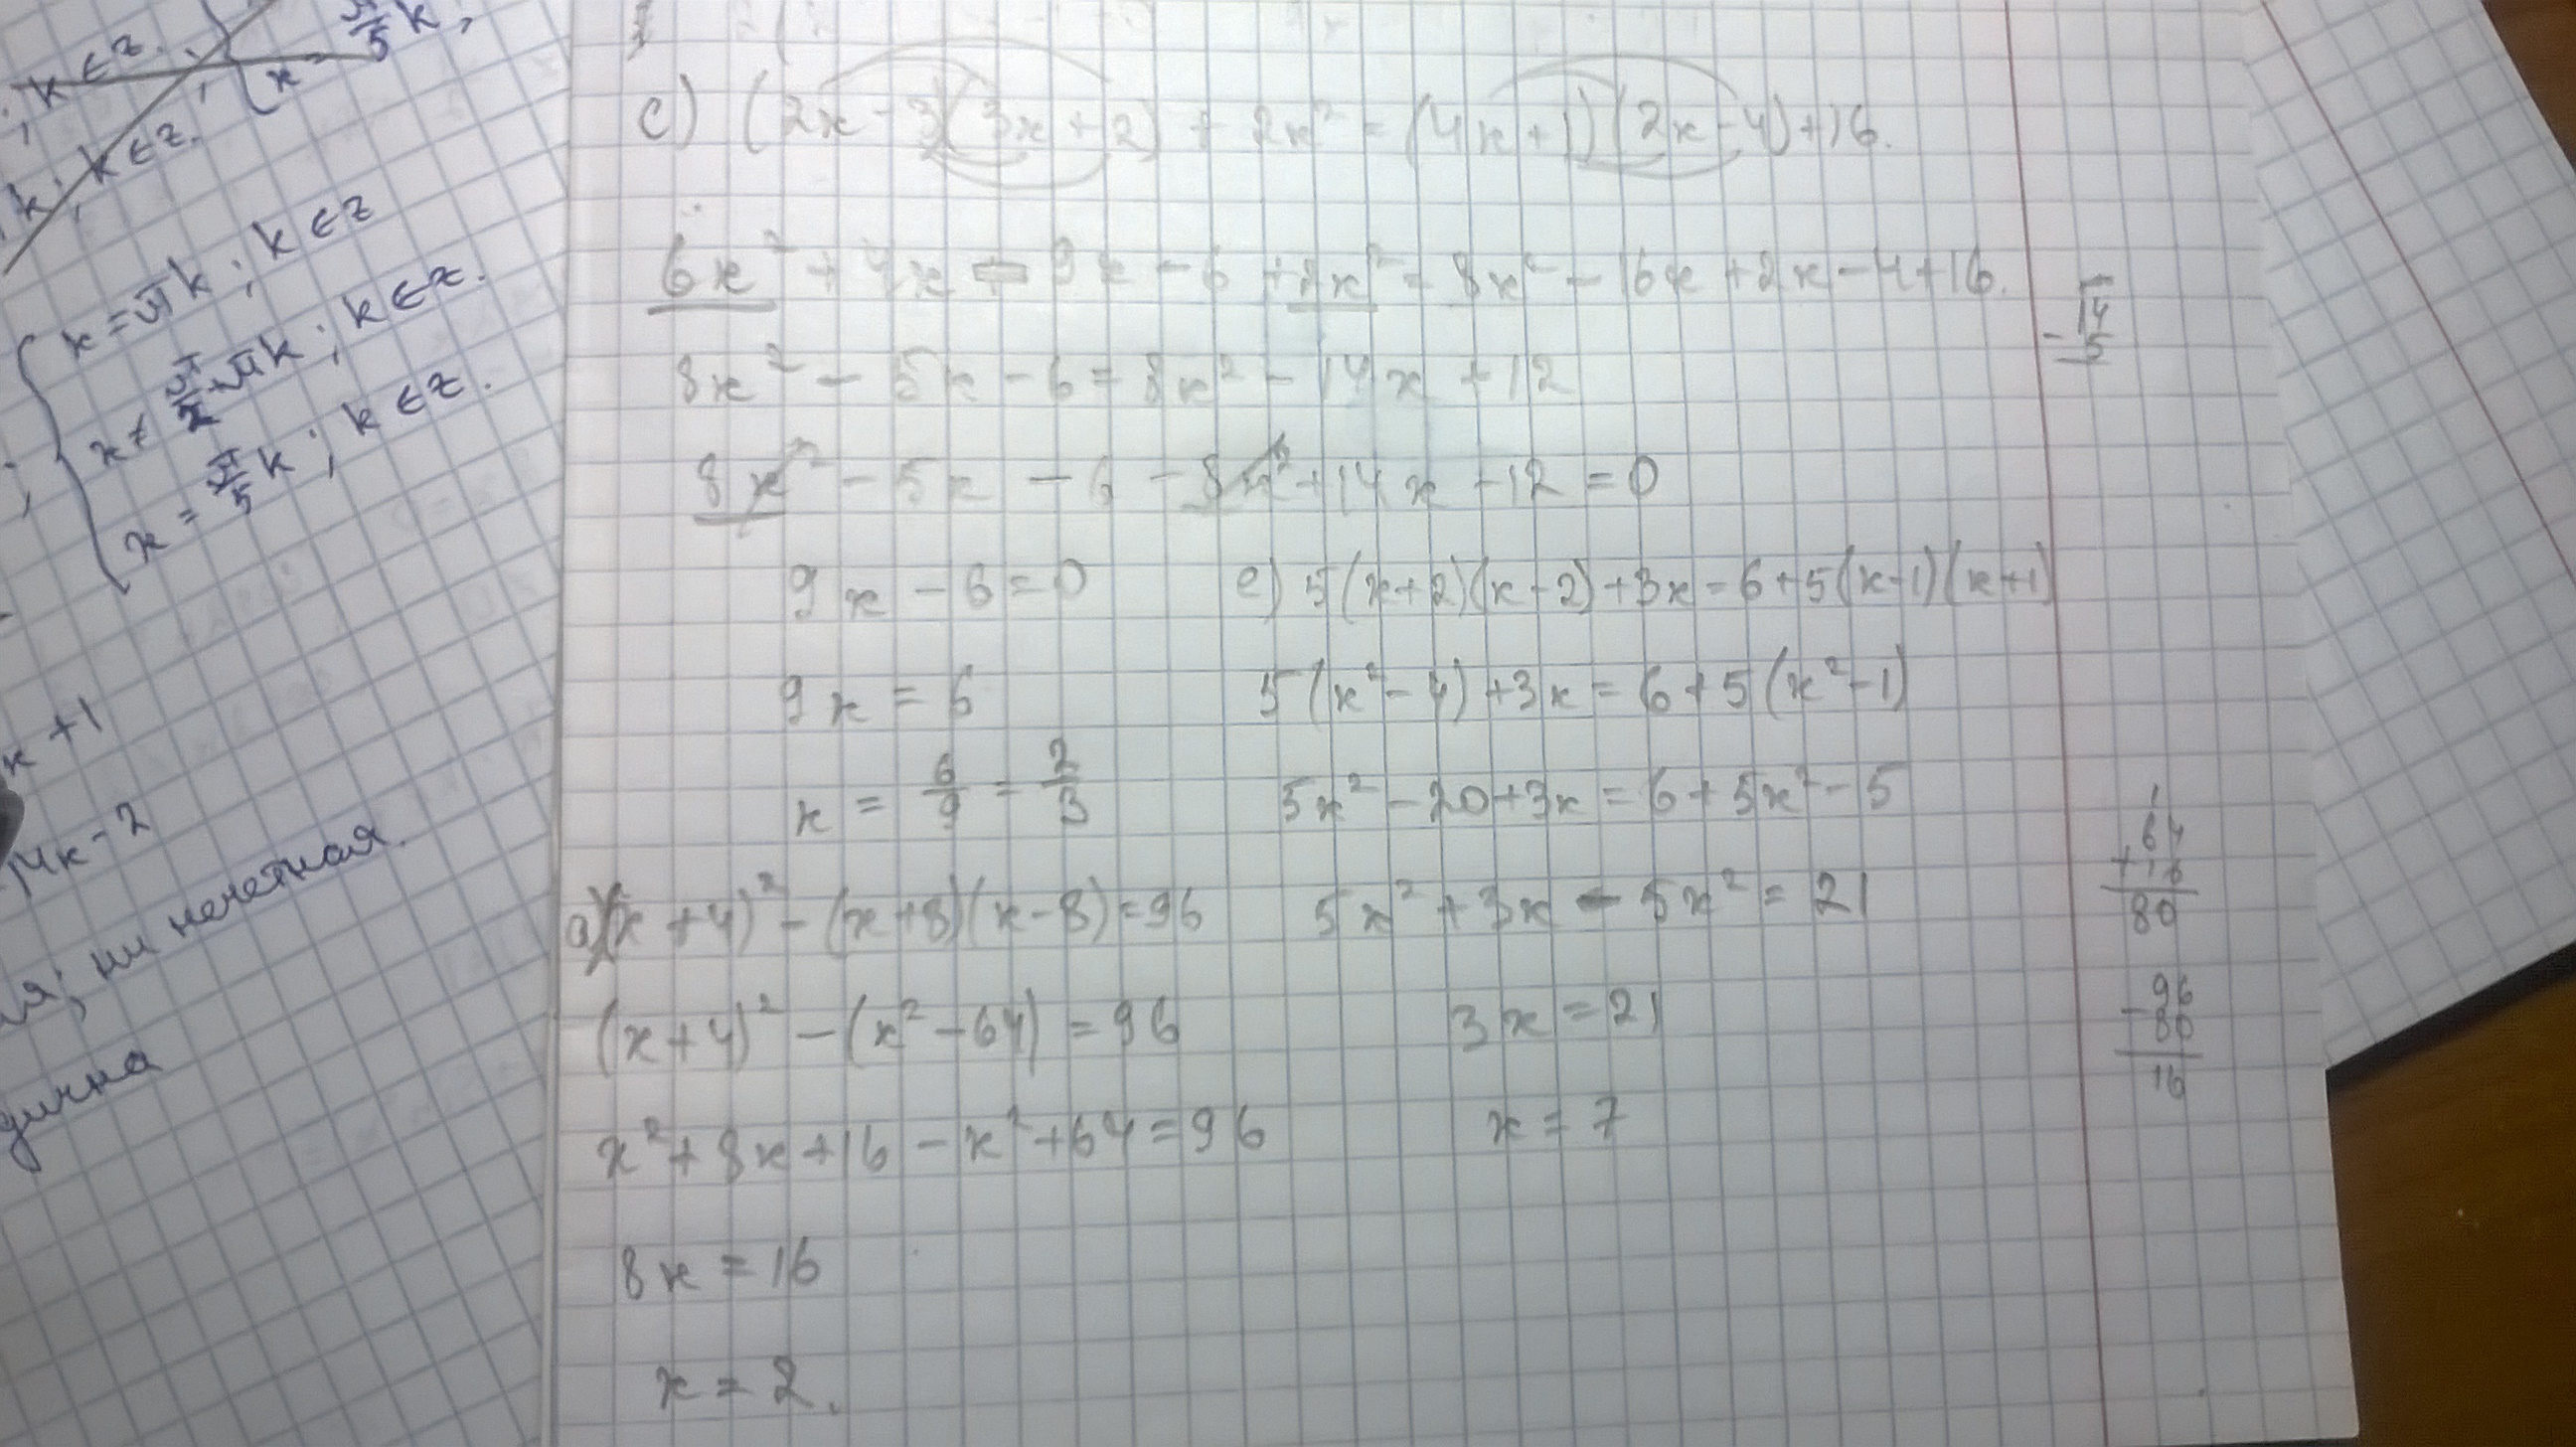 ; k ∈ z.
x = π/5 k,
k; k ∈ z.
x = πk; k ∈ z
x ≠ π/2 + πk; k ∈ z.
x = π/5 k; k ∈ z.
x + 1
14x - 2
ни нечетная.
c) (2x - 3)(3x + 2) + 2x² = (4x + 1)(2x - 4) + 16.
6x² + 4x - 9x - 6 + 2x² = 8x² - 16x + 2x - 4 + 16.
8x² - 5x - 6 = 8x² - 14x + 12
8x² - 5x - 6 - 8x² + 14x - 12 = 0
9x - 6 = 0
9x = 6
x = 6/9 = 2/3
a) (x + 4)² - (x + 8)(x - 8) = 96
(x + 4)² - (x² - 64) = 96
x² + 8x + 16 - x² + 64 = 96
8x = 16
x = 2.
e) 5(x + 2)(x - 2) + 3x = 6 + 5(x - 1)(x + 1)
5(x² - 4) + 3x = 6 + 5(x² - 1)
5x² - 20 + 3x = 6 + 5x² - 5
5x² + 3x - 5x² = 21
3x = 21
x = 7
14
- 5
1
64
+ 16
80
96
- 80
16